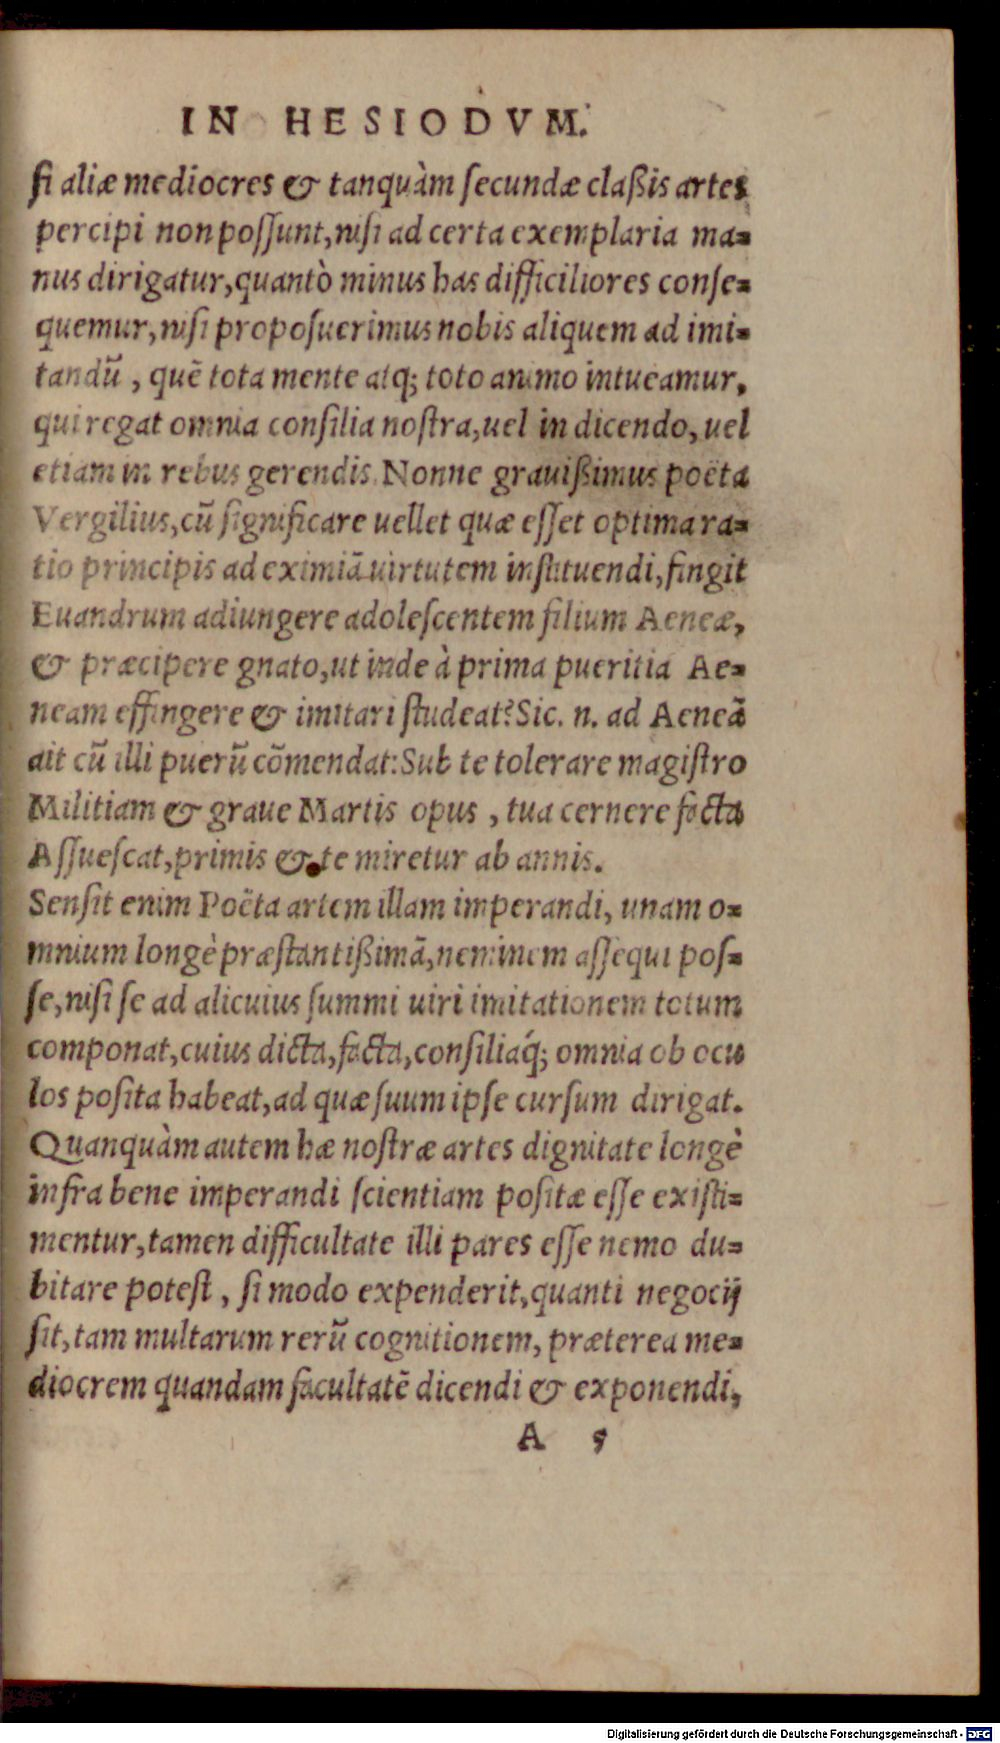 IN HESIODVM.
ſi aliæ mediocres & tanquàm ſecundæ claßis artes
percipi non poſſunt, niſi ad certa exemplaria ma-
nus dirigatur, quantò minus has difficiliores conſe-
quemur, niſi propoſuerimus nobis aliquem ad imi-
tandũ, quẽ tota mente atq; toto animo intueamur,
qui regat omnia conſilia noſtra, uel in dicendo, uel
etiam in rebus gerendis. Nonne grauißimus poëta
Vergilius, cũ ſignificare uellet quæ eſſet optima ra-
tio principis ad eximiã uirtutem inſtituendi, fingit
Euandrum adiungere adoleſcentem filium Aeneæ,
& præcipere gnato, ut inde à prima pueritia Ae-
neam effingere & imitari ſtudeat? Sic. n. ad Aeneã
ait cũ illi puerũ cõmendat: Sub te tolerare magiſtro
Militiam & graue Martis opus, tua cernere facta
Aſſueſcat, primis & te miretur ab annis.
Senſit enim Poëta artem illam imperandi, unam o-
mnium longè præſtantißimã, neminem aſſequi poſ-
ſe, niſi ſe ad alicuius ſummi uiri imitationem totum
componat, cuius dicta, facta, conſiliaq́; omnia ob ocu
los poſita habeat, ad quæ ſuum ipſe curſum dirigat.
Quanquàm autem hæ noſtræ artes dignitate longè
infra bene imperandi ſcientiam poſitæ eſſe exiſti-
mentur, tamen difficultate illi pares eſſe nemo du-
bitare poteſt, ſi modo expenderit, quanti negocij
ſit, tam multarum rerũ cognitionem, præterea me-
diocrem quandam facultatẽ dicendi & exponendi,
A 5
Digitalisierung gefördert durch die Deutsche Forschungsgemeinschaft - DFG